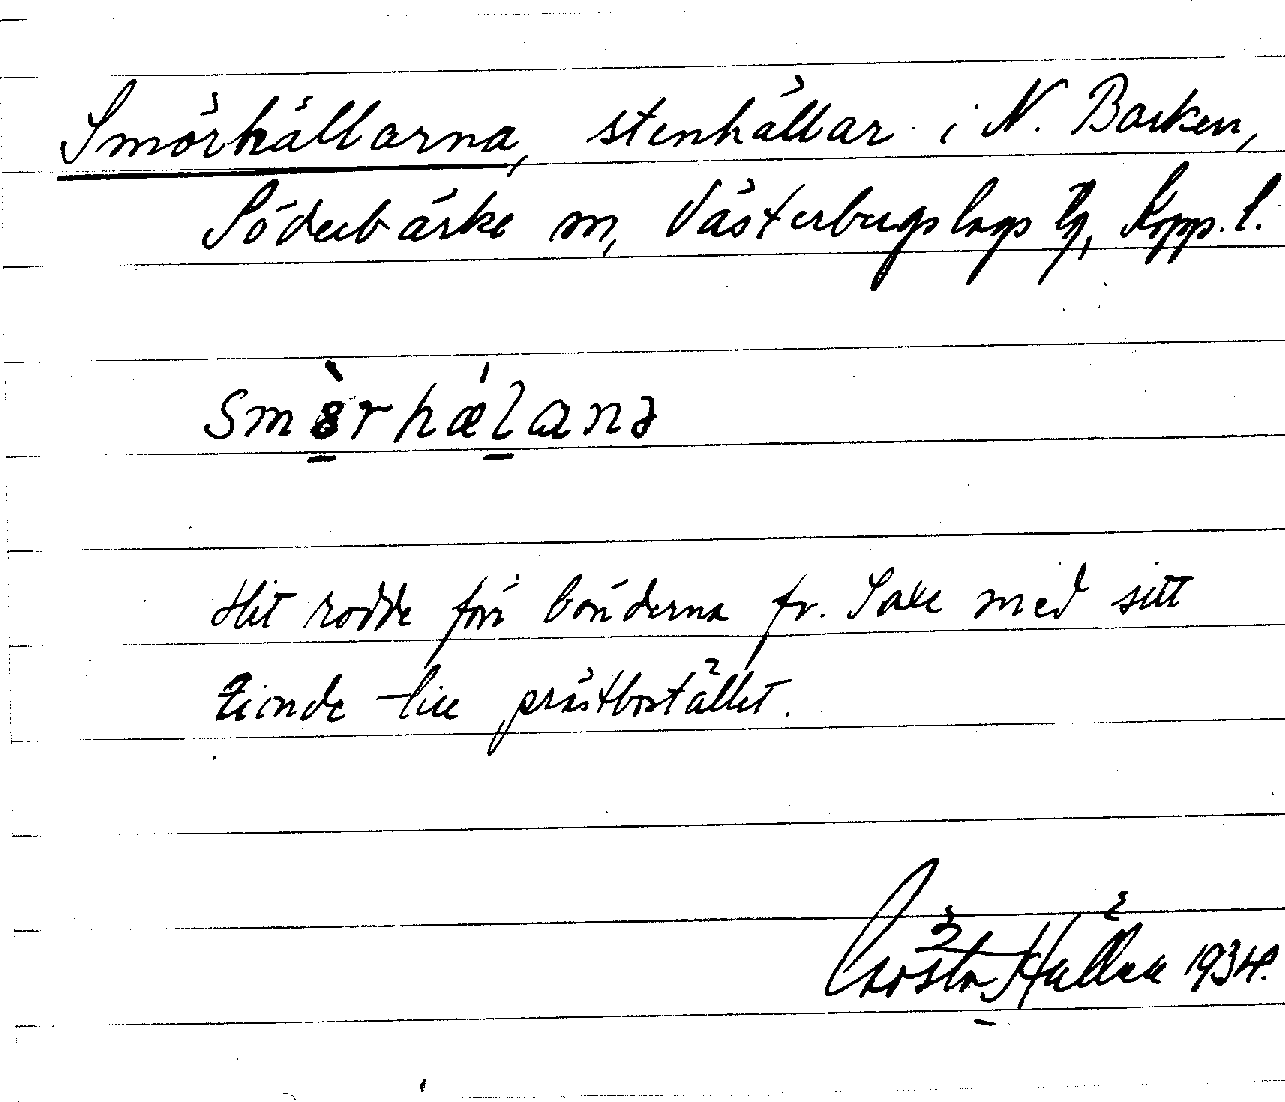 Smörhällarna, stenhällar i N. Barken,
Söderbärke sn, Västerbergslags tg, Kopp. l.
smörhælana
Hit rodde förr bönderna fr. Saxe med sitt
tionde till prästbostället.
Gösta Hällen 1934.